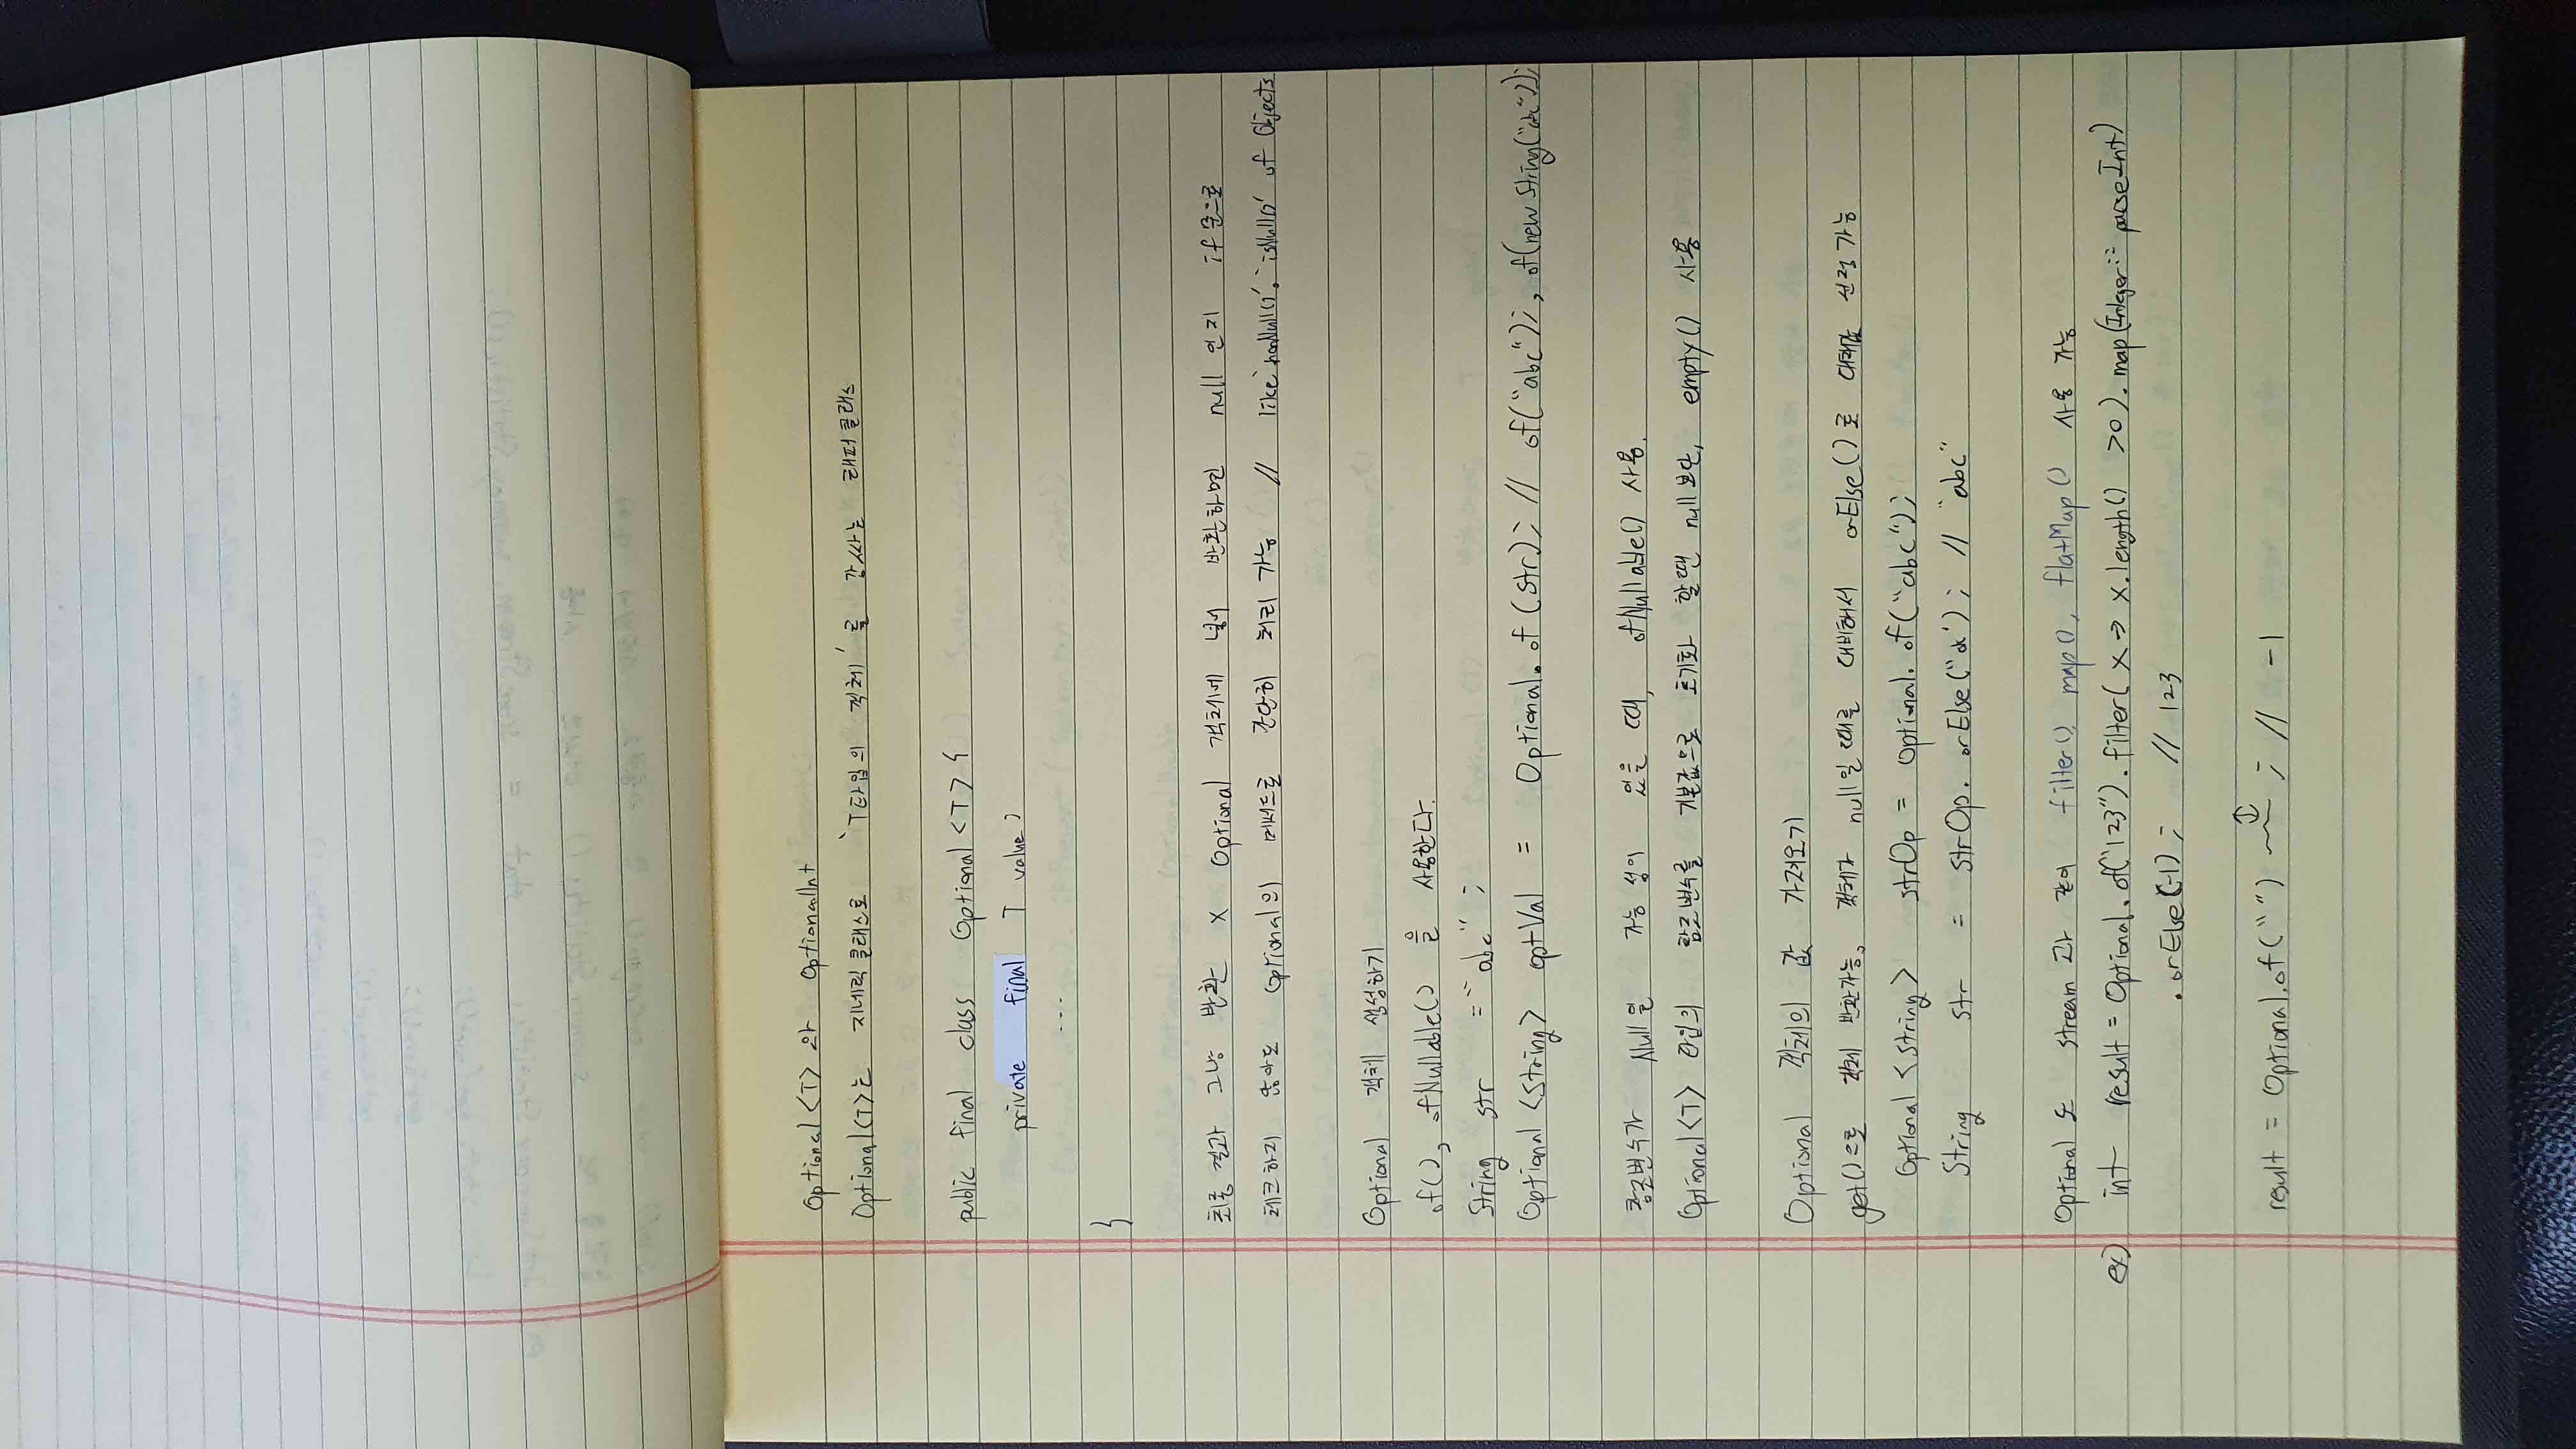 Optional<T> 와 OptionalInt
Optional<T>는 지네릭 클래스로 'T타입의 객체'를 감싸는 래퍼 클래스
public final class Optional<T> {
private final T value;
...
}
최종 결과 그냥 반환 X Optional 객체에 넣어 반환하면 null 인지 if문으로
체크하지 않아도 Optional의 메서드로 간단히 처리 가능 // like 'nonNull()', 'isNull()' of Objects
Optional 객체 생성하기
of(), ofNullable() 을 사용한다.
String str = "abc" ;
Optional <String> optVal = Optional.of (str); // of("abc");, of(new String("abc"));
참조변수가 Null일 가능성이 있을 때, ofNullable() 사용.
Optional<T> 타입의 참조변수를 기본값으로 초기화 할땐 null보단, empty() 사용
Optional 객체의 값 가져오기
get()으로 객체 반환가능, 객체가 null일 때를 대비해서 orElse()로 대체값 선정 가능
Optional <String> strOp = Optional.of("abc");
String str = strOp. orElse(" "); // "abc"
Optional 도 stream 과 같이 filter(), map(), flatMap() 사용 가능
ex) int result = Optional.of("123").filter( x -> x.length() >0 ).map(Integer::parseInt)
.orElse(-1) ; // 123
result = Optional.of("") ~ ; // -1